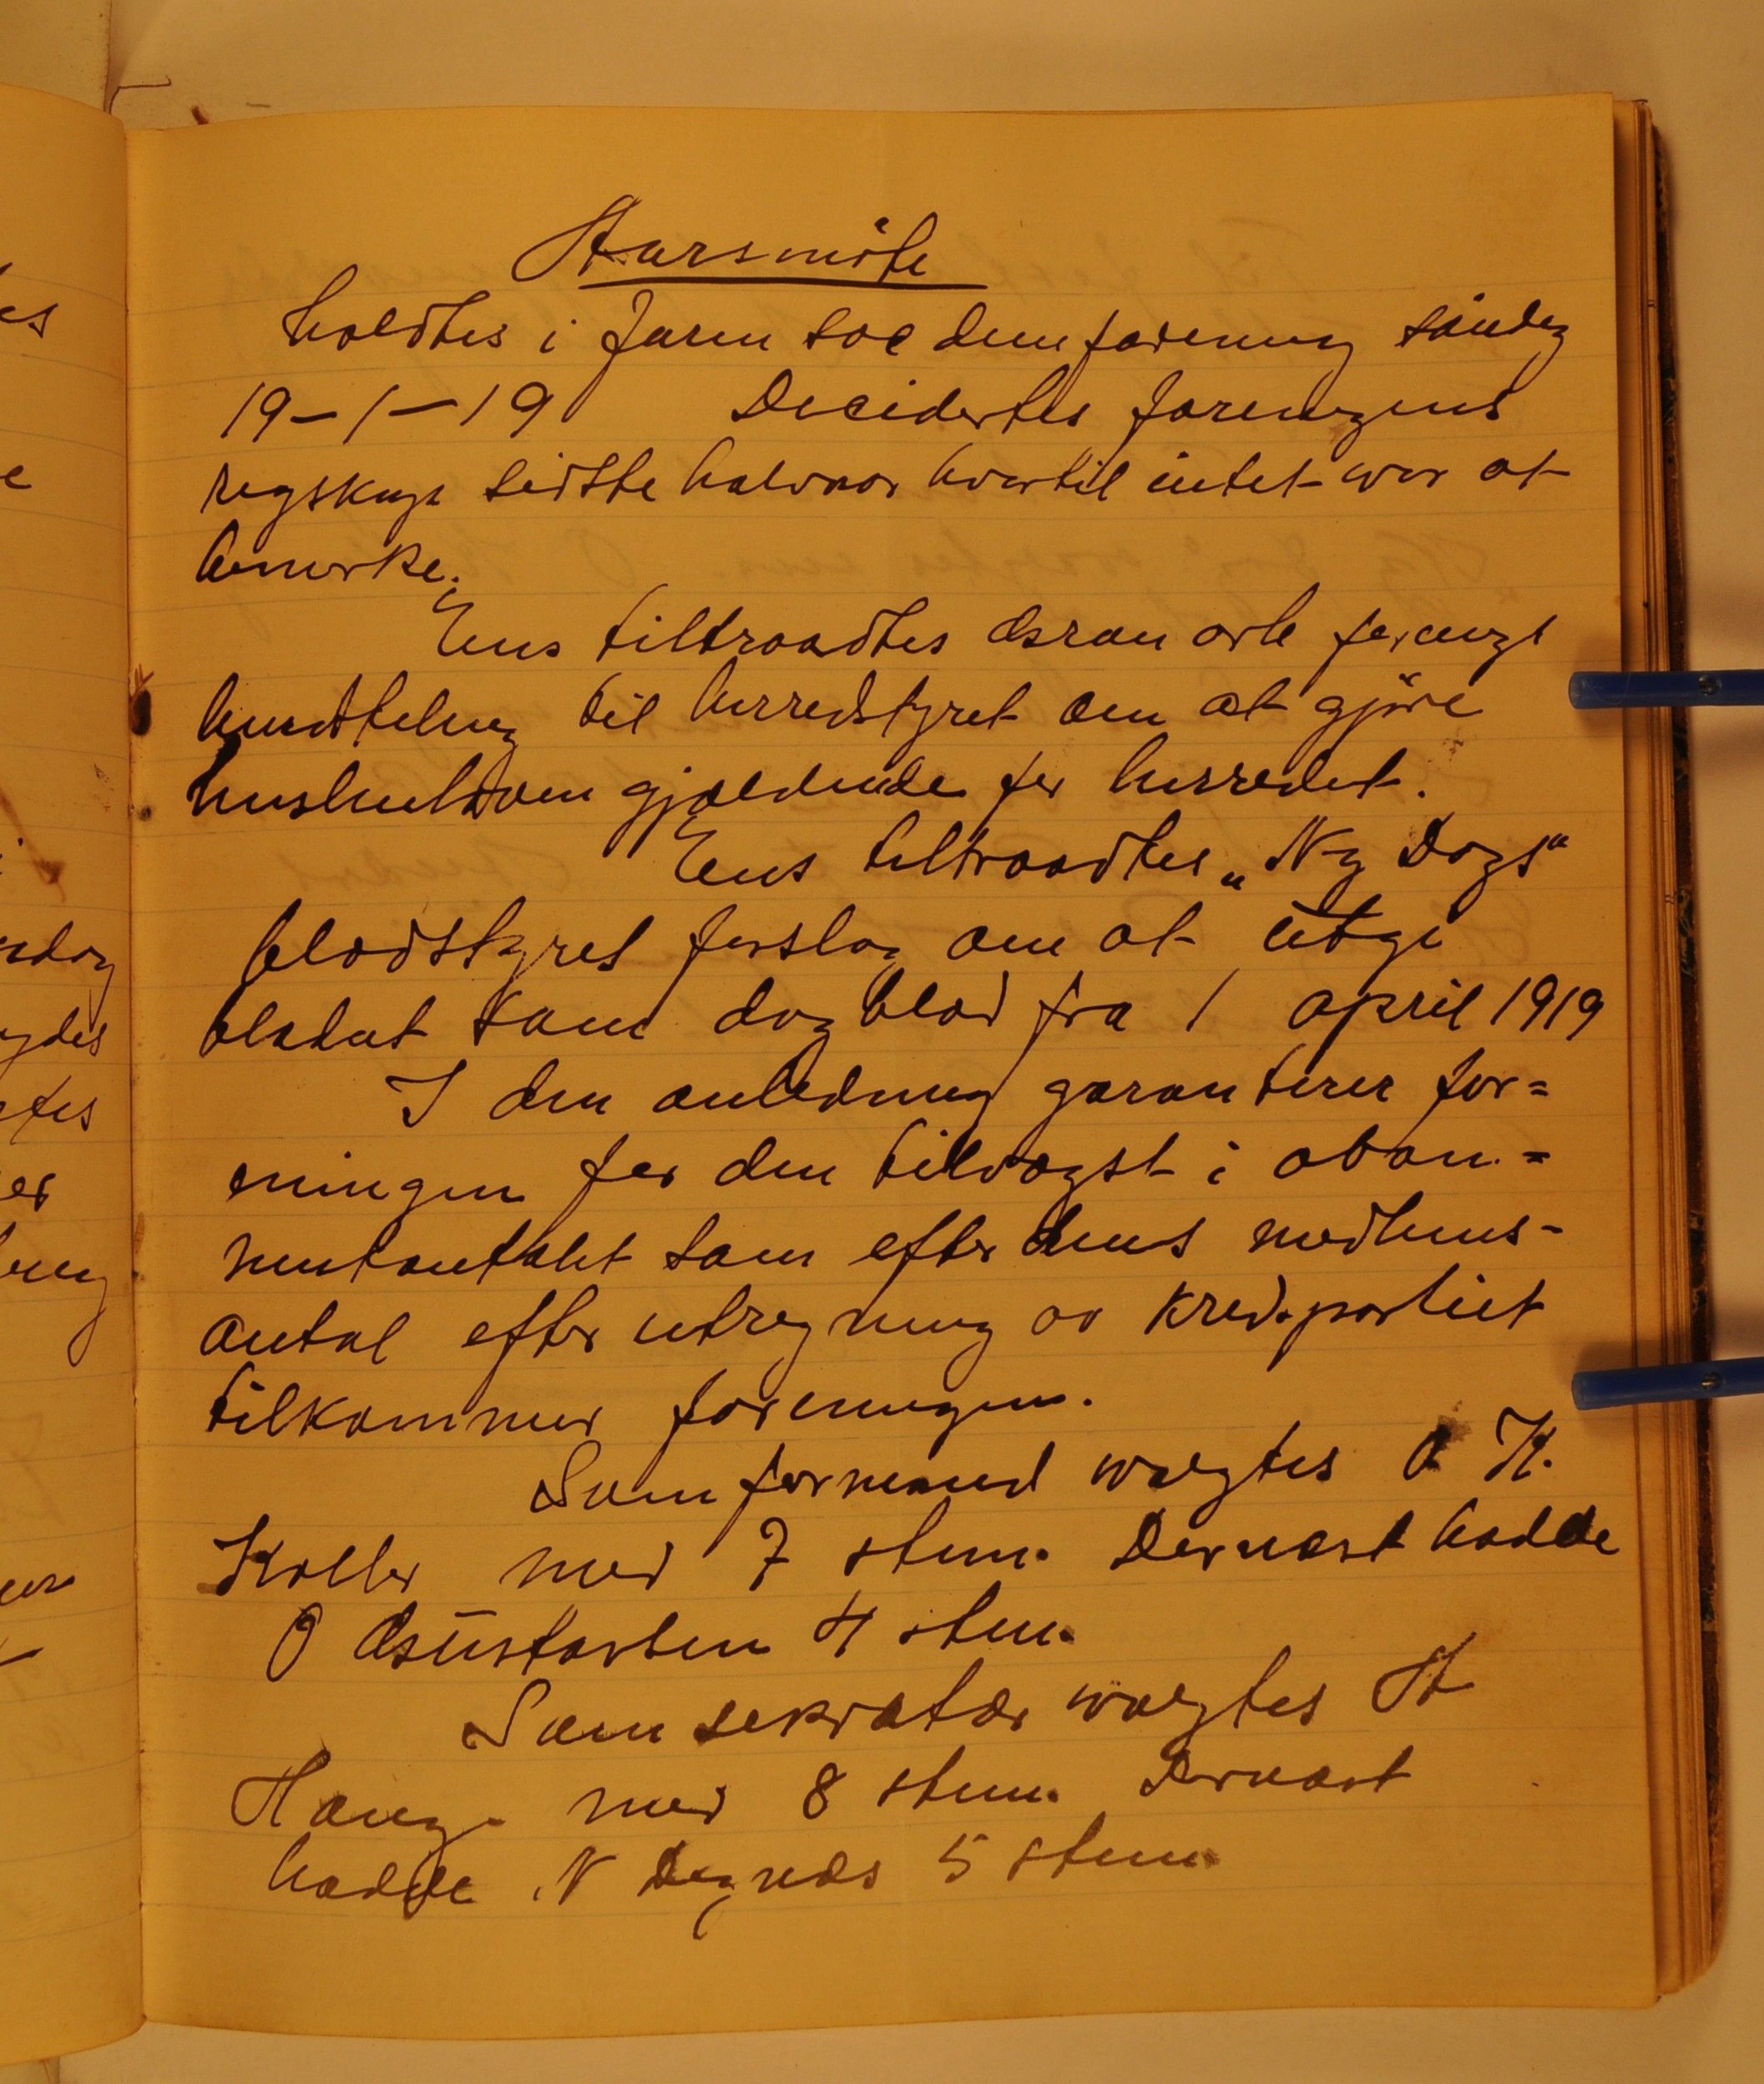 Aarsmöte
holdtes i Faren soc dem forening söndag
19-1-19 Decidertes foreningens
regskap sidste halvaar hvortil intet var at
bemerke.
Ens tiltraadtes foreings
hensteling til herredstyret om at gjöre
husleieloven gjældende for herredet.
Ens tiltraadtes „Ny Dags"
bladstyres forslag om at utgi
bladet som dagblad fra 1 april 1919
I den anledning garanterer for=
eningen for den tilvægst i abon=
nentantalet som efter dens medlems-
antal efter utregning av Kredspartiet
tilkommer foreningen.
Som formand valgtes O H.
Koller med 7 stem. Dernæst hadde
O 4 stem.
Som sekretær valgtes H
Haug. med 8 stem. Dernæst
hadde N Degnæs 5 stem.
ndag
er